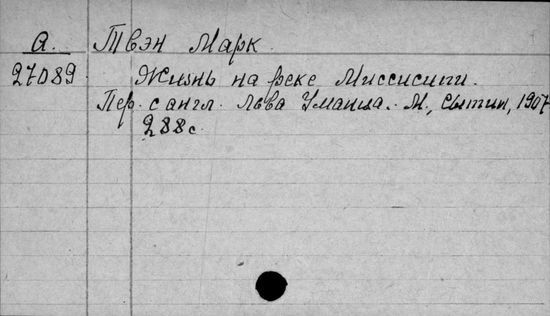 А. Твэн Марк.
27089 Жизнь на реке Миссисипи.
Пер. с англ. Льва Уманца. М., Сытин, 1907
288 с.